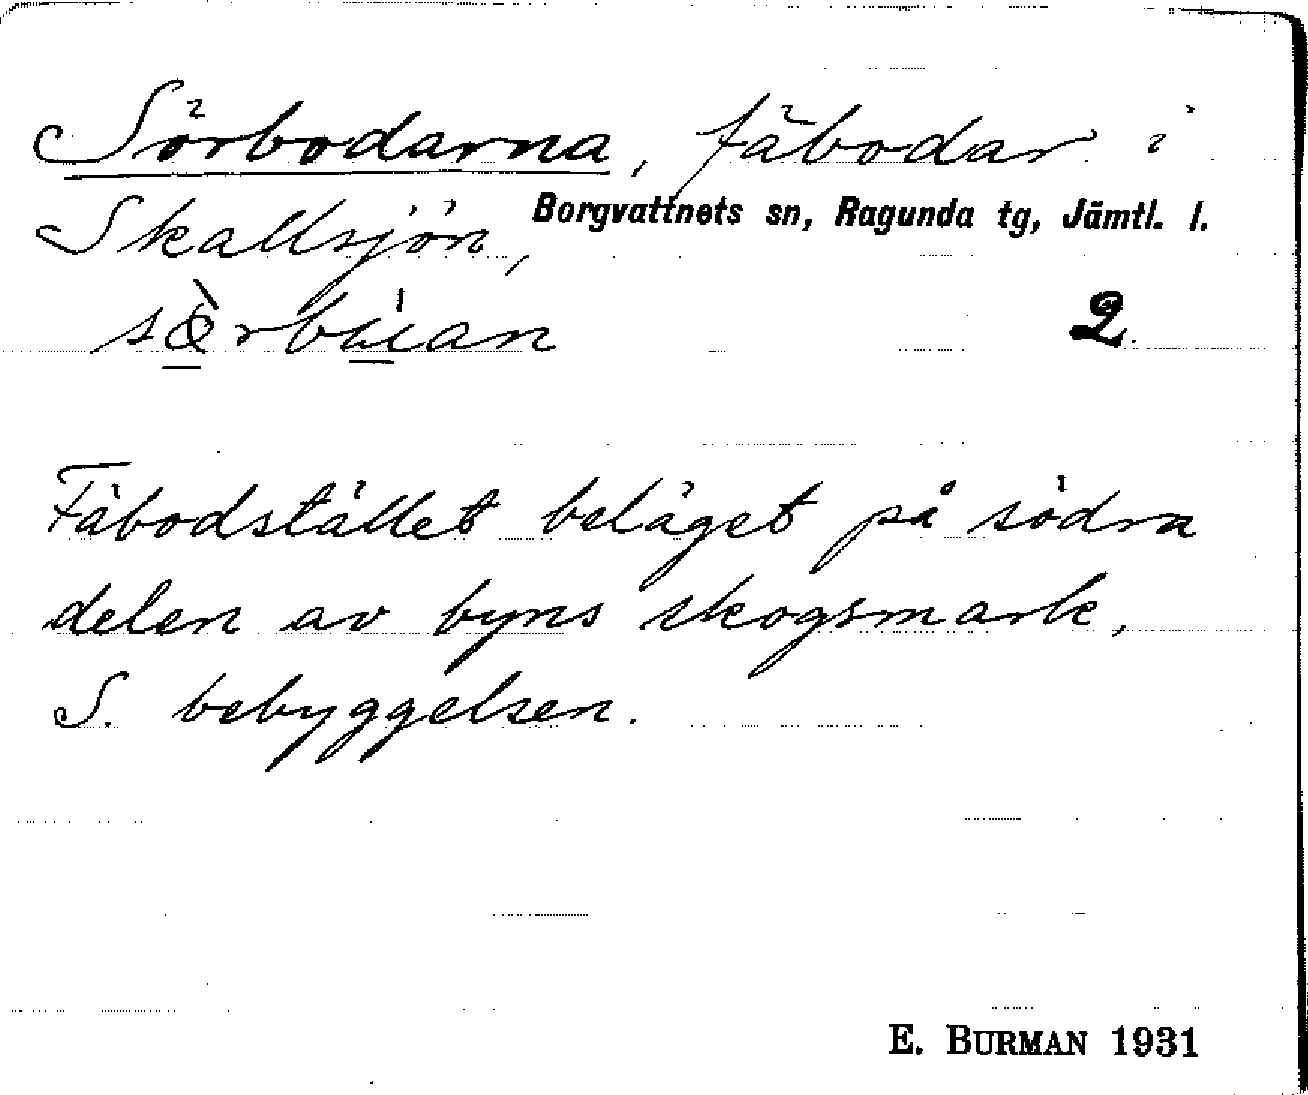 Sörbodarna, fäbodar i
Skallsjön, Borgvattnets sn, Ragunda tg, Jämtl. l.
sœ̀rbúan 2.
Fäbodstället beläget på södra
delen av byns skogsmark,
S. bebyggelsen.
E. BURMAN 1931